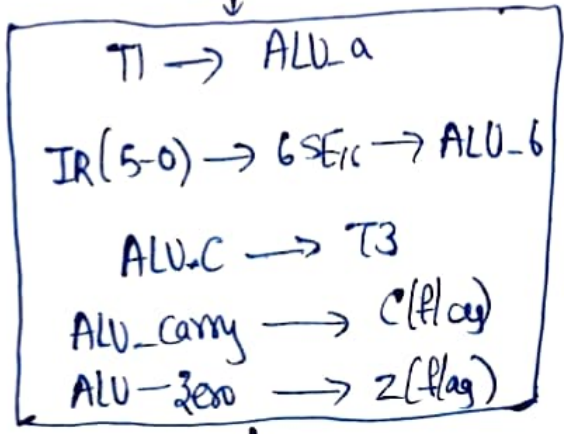 T1 → ALU_a
IR(5-0) → 6SE16 → ALU_b
ALU_C → T3
ALU_Carry → C(flag)
ALU-Zero → Z(flag)